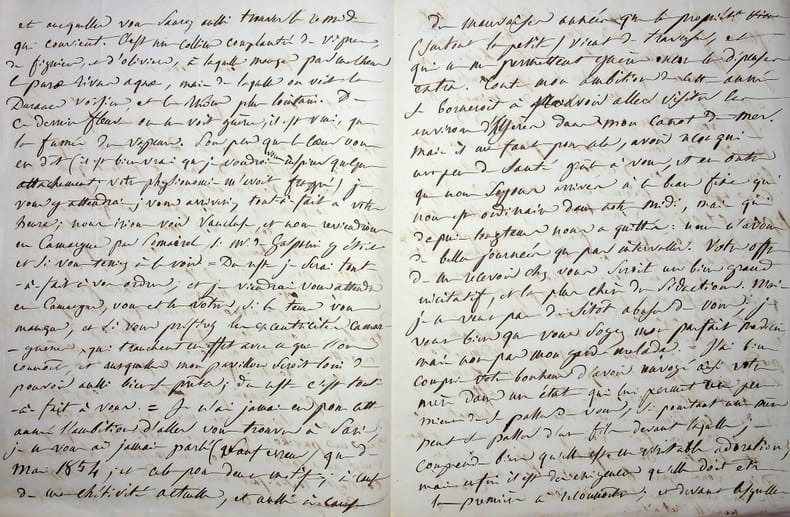 et auxquelles vous saurez aussi trouver le remède
qui convient. C'est une colline complantée de vignes,
de figuiers, et d'oliviers, à laquelle manque par malheur
le puræ rivus aquæ, mais de laquelle on voit la
Durance voisine et le Rhône plus lointain. De
ce dernier fleuve on ne voit guère, il est vrai, que
la fumée des vapeurs. Pour peu que le cœur vous
en dit (il est bien vrai que je voudrois vous inspirer quelque
attachement, votre physionomie m'avoit frappé) je
vous y attendrai, je vous arriverai, tout-à-fait à votre
heure; nous irions voir Vaucluse et nous reviendrions
en Camargue par l'omnibus, si Mr de Gasparin y étoit
et si vous teniez à le voir = Du reste je serai tout
-à-fait à vos ordres; et je viendrai vous attendre
en Camargue, vous et les vôtres, si le tems vous
manque, et si vous préférez les excentricités camar-
-guenes qui tranchent en effet avec ce que l'on
connoit, et auxquelles mon pavillon seroit loin de
pouvoir aussi bien se prêter; du reste c'est tout-
-à-fait à vous. = Je n'ai jamais eu pour cette
année l'ambition d'aller vous trouver à Paris:
je ne vous ai jamais parlé (sauf erreur) que de
Mai 1854, et cela pour deux motifs, à cause
de ma chétivité actuelle, et aussi à cause
des mauvaises années que la propriété
(surtout la petite) vient de traverser, et
qui ne me permettent guère encore les dépenses
extra. Toute mon ambition de cette année
se borneroit à pouvoir aller visiter les
environs d'Hyères dans mon canot de mer.
Mais il me faut pour cela, avoir acquis
un peu de santé grâce à vous, et en outre
que nous soyions arrivés à la beau fixe qui
nous est ordinaire dans notre midi, mais qui
depuis longtems nous a quitté: nous n'avons
de belles journées que par intervalles. Votre offre
de me recevoir chez vous seroit un bien grand
incitatif, et la plus chère des séductions. Mais
je ne veux pas de sitôt abuser de vous: je
veux bien que vous soyez mon parfait médecin
mais non pas mon garde malade. J'ai bien
compris votre bonheur d'avoir envoyé votre
mère dans un état qui lui permet un peu
mieux de se passer de vous, si pourtant une mère
peut se passer d'un fils devant laquelle je
comprends bien qu'elle est en véritable adoration;
mais enfin il est des exigences qu'elle doit être
la première à reconnoître, et devant lesquelles